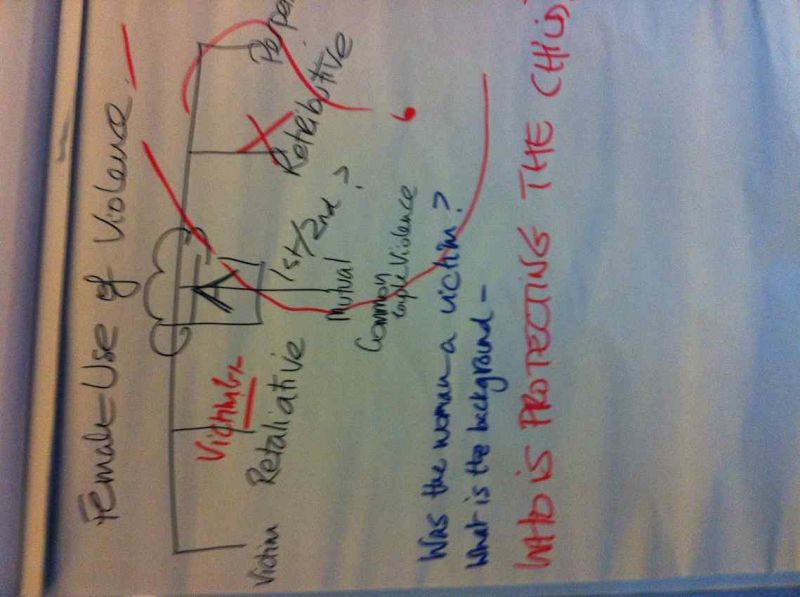 Female-Use of Violence.
Victim
Retaliative
1st/2nd?
Mutual
Common
Couple Violence
Retributive
Was the woman a victim?
What is the background -
WHO IS PROTECTING THE CHILD